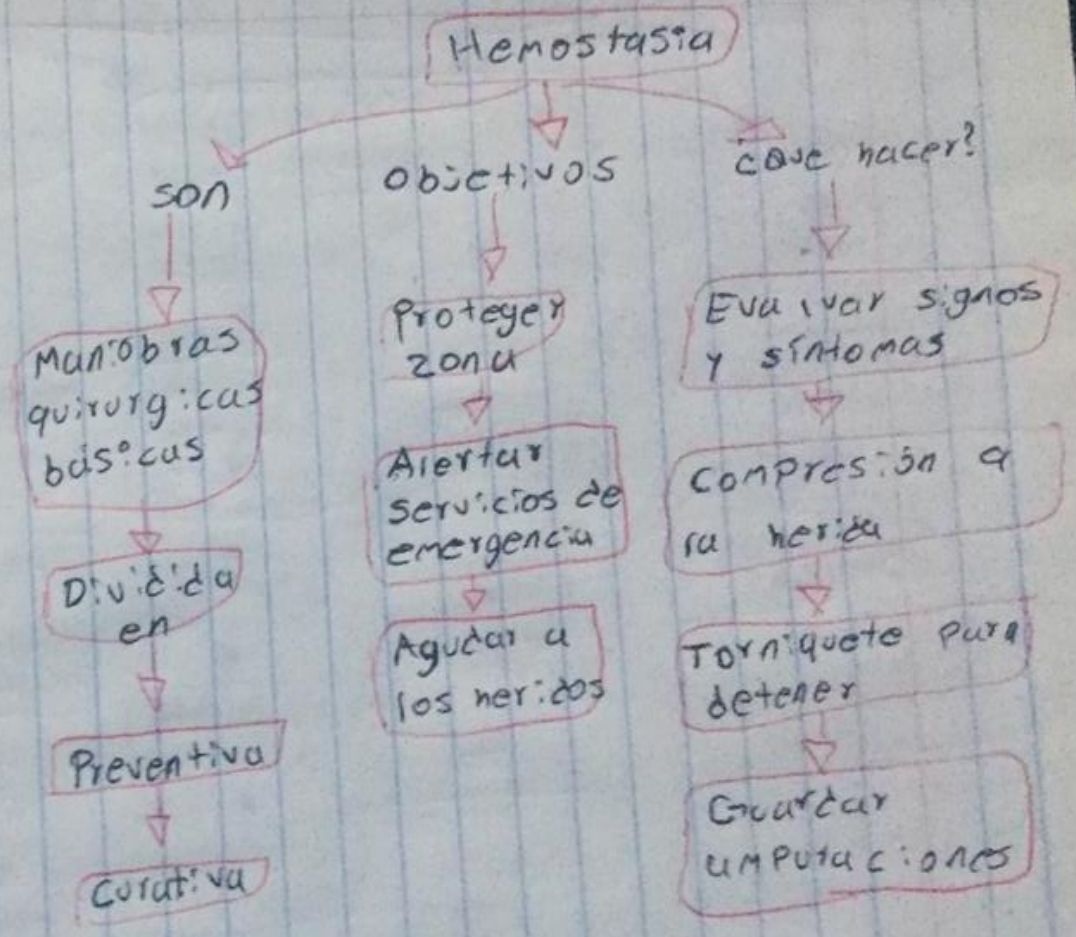 Hemostasia
son
objetivos
¿Que hacer?
Maniobras
quirurgicas
basicas
Dividida
en
Preventiva
Curativa
Proteger
zona
Alertar
servicios de
emergencia
Agudar a
los heridos
Evaluar signos
y síntomas
Compresión a
la herida
Torniquete para
detener
Guardar
amputaciones